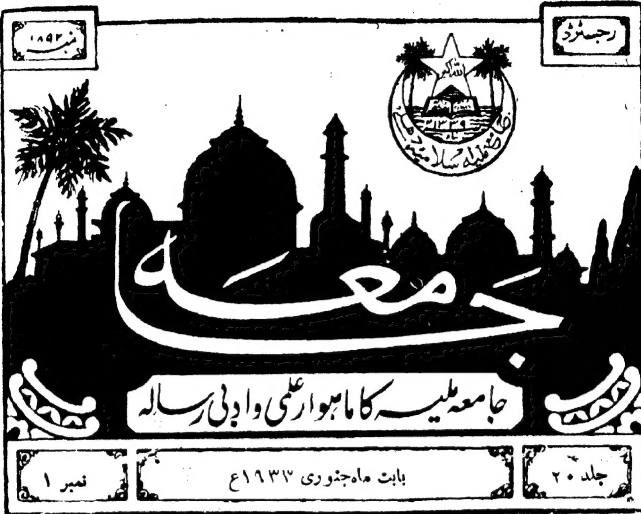 رجسٹرڈ
نمبر
اللہ اکبر
۱۳۳۹
جامعہ ملیہ اسلامیہ دہلی
جامعہ
جامعہ ملیہ کا ماہوار علمی و ادبی رسالہ
جلد ۲۰
بابت ماہ جنوری ۱۹۳۳ع
نمبر ۱